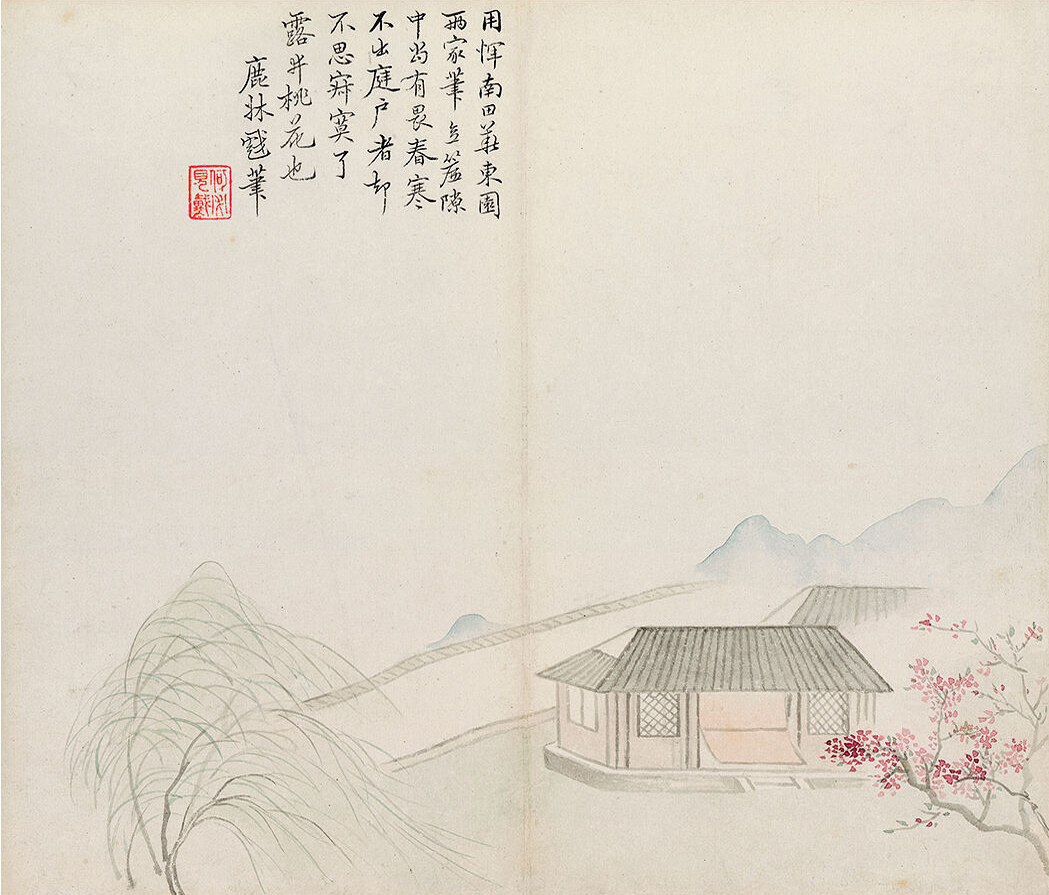 用惲南田華東園
兩家筆意簾隙
中当有畏春寒
不出庭户者却
不思寂寞了
露井桃花也
鹿牀戲筆
何必見戴